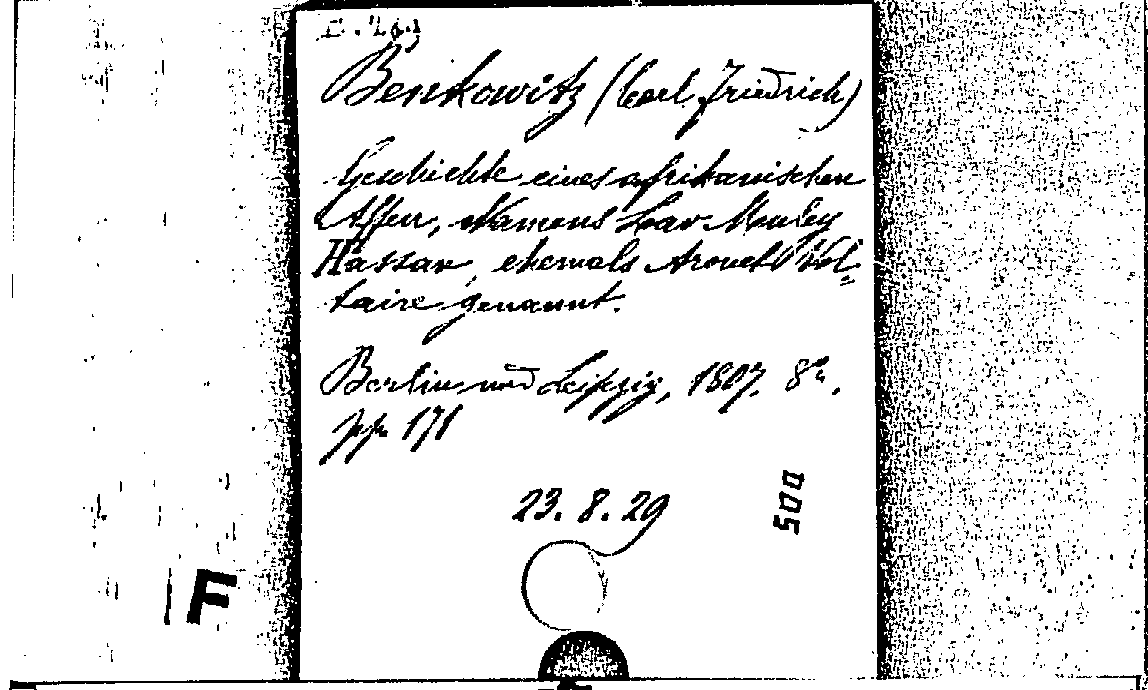 Benkowitz (Carl Friedrich)
Geschichte eines afrikanischen
Affen, Namens Lav Muley
Hassan, ehemals Arouet Vol=
taire genannt.
Berlin und Leipzig, 1807. 8°.
pp. 171
23. 8. 29
500
F